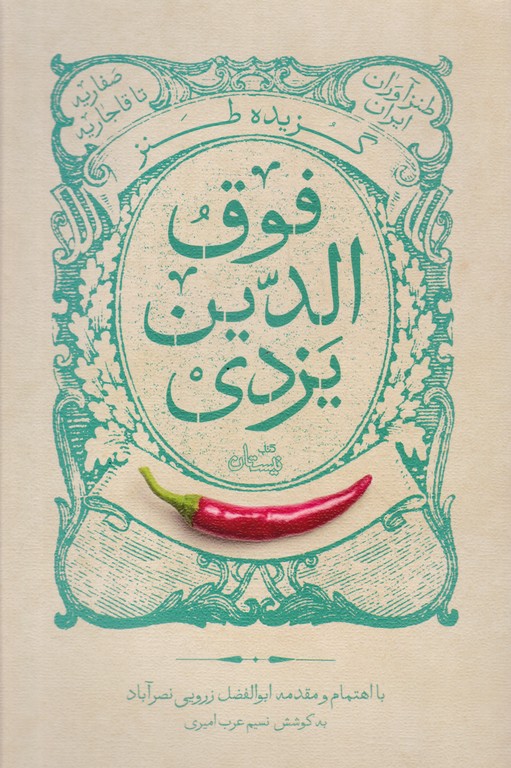 طنزآوران
ایران
صفاریه
تا قاجاریه
گزیده طنز
فوق
الدّین
یزدی
کتاب
نیستان
با اهتمام و مقدمه ابوالفضل زرویی نصرآباد
به کوشش نسیم عرب امیری